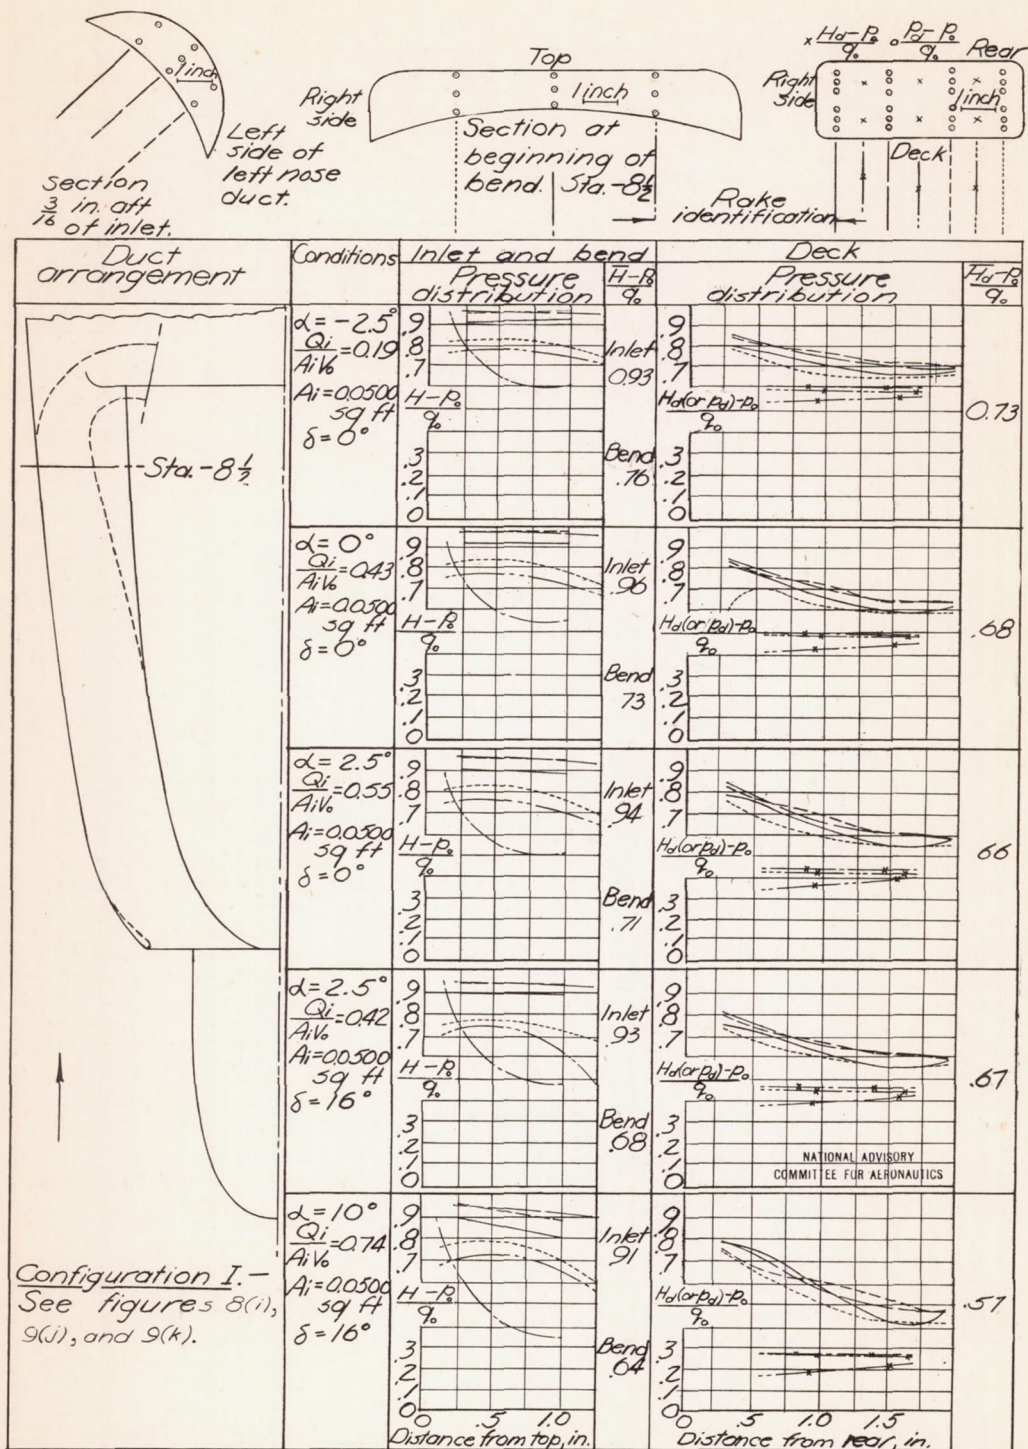 1 inch
Left
side of
left nose
duct.
Section
3/16 in. aft
of inlet.
Top
Right
side
1 inch
Section at
beginning of
bend. Sta.-8½
x Hd-Po/qo o Pd-Po/qo Rear
Right
side
1 inch
Deck
Rake
identification
Duct
arrangement
Conditions
Inlet and bend
Pressure
distribution
H-Po/qo
Deck
Pressure
distribution
Hd-Po/qo
Sta.-8½
α=-2.5°
Qi/AiVo=0.19
Ai=0.0500
sq ft
δ=0°
.9
.8
.7
H-Po/qo
.3
.2
.1
0
Inlet
0.93
Bend
.76
.9
.8
.7
Hd(or pd)-po/qo
.3
.2
.1
0
0.73
α=0°
Qi/AiVo=0.43
Ai=0.0500
sq ft
δ=0°
.9
.8
.7
H-Po/qo
.3
.2
.1
0
Inlet
.96
Bend
73
.9
.8
.7
Hd(or pd)-po/qo
.3
.2
.1
0
.68
α=2.5°
Qi/AiVo=0.55
Ai=0.0500
sq ft
δ=0°
.9
.8
.7
H-Po/qo
.3
.2
.1
0
Inlet
.94
Bend
.71
.9
.8
.7
Hd(or pd)-po/qo
.3
.2
.1
0
66
α=2.5°
Qi/AiVo=0.42
Ai=0.0500
sq ft
δ=16°
.9
.8
.7
H-Po/qo
.3
.2
.1
0
Inlet
.93
Bend
.68
.9
.8
.7
Hd(or pd)-po/qo
.3
.2
.1
0
NATIONAL ADVISORY
COMMITTEE FOR AERONAUTICS
.67
α=10°
Qi/AiVo=0.74
Ai=0.0500
sq ft
δ=16°
.9
.8
.7
H-Po/qo
.3
.2
.1
0
Inlet
91
Bend
.64
.9
.8
.7
Hd(or pd)-po/qo
.3
.2
.1
0
.57
0 .5 1.0
Distance from top, in.
0 .5 1.0 1.5
Distance from rear, in.
Configuration I.-
See figures 8(i),
9(j), and 9(k).